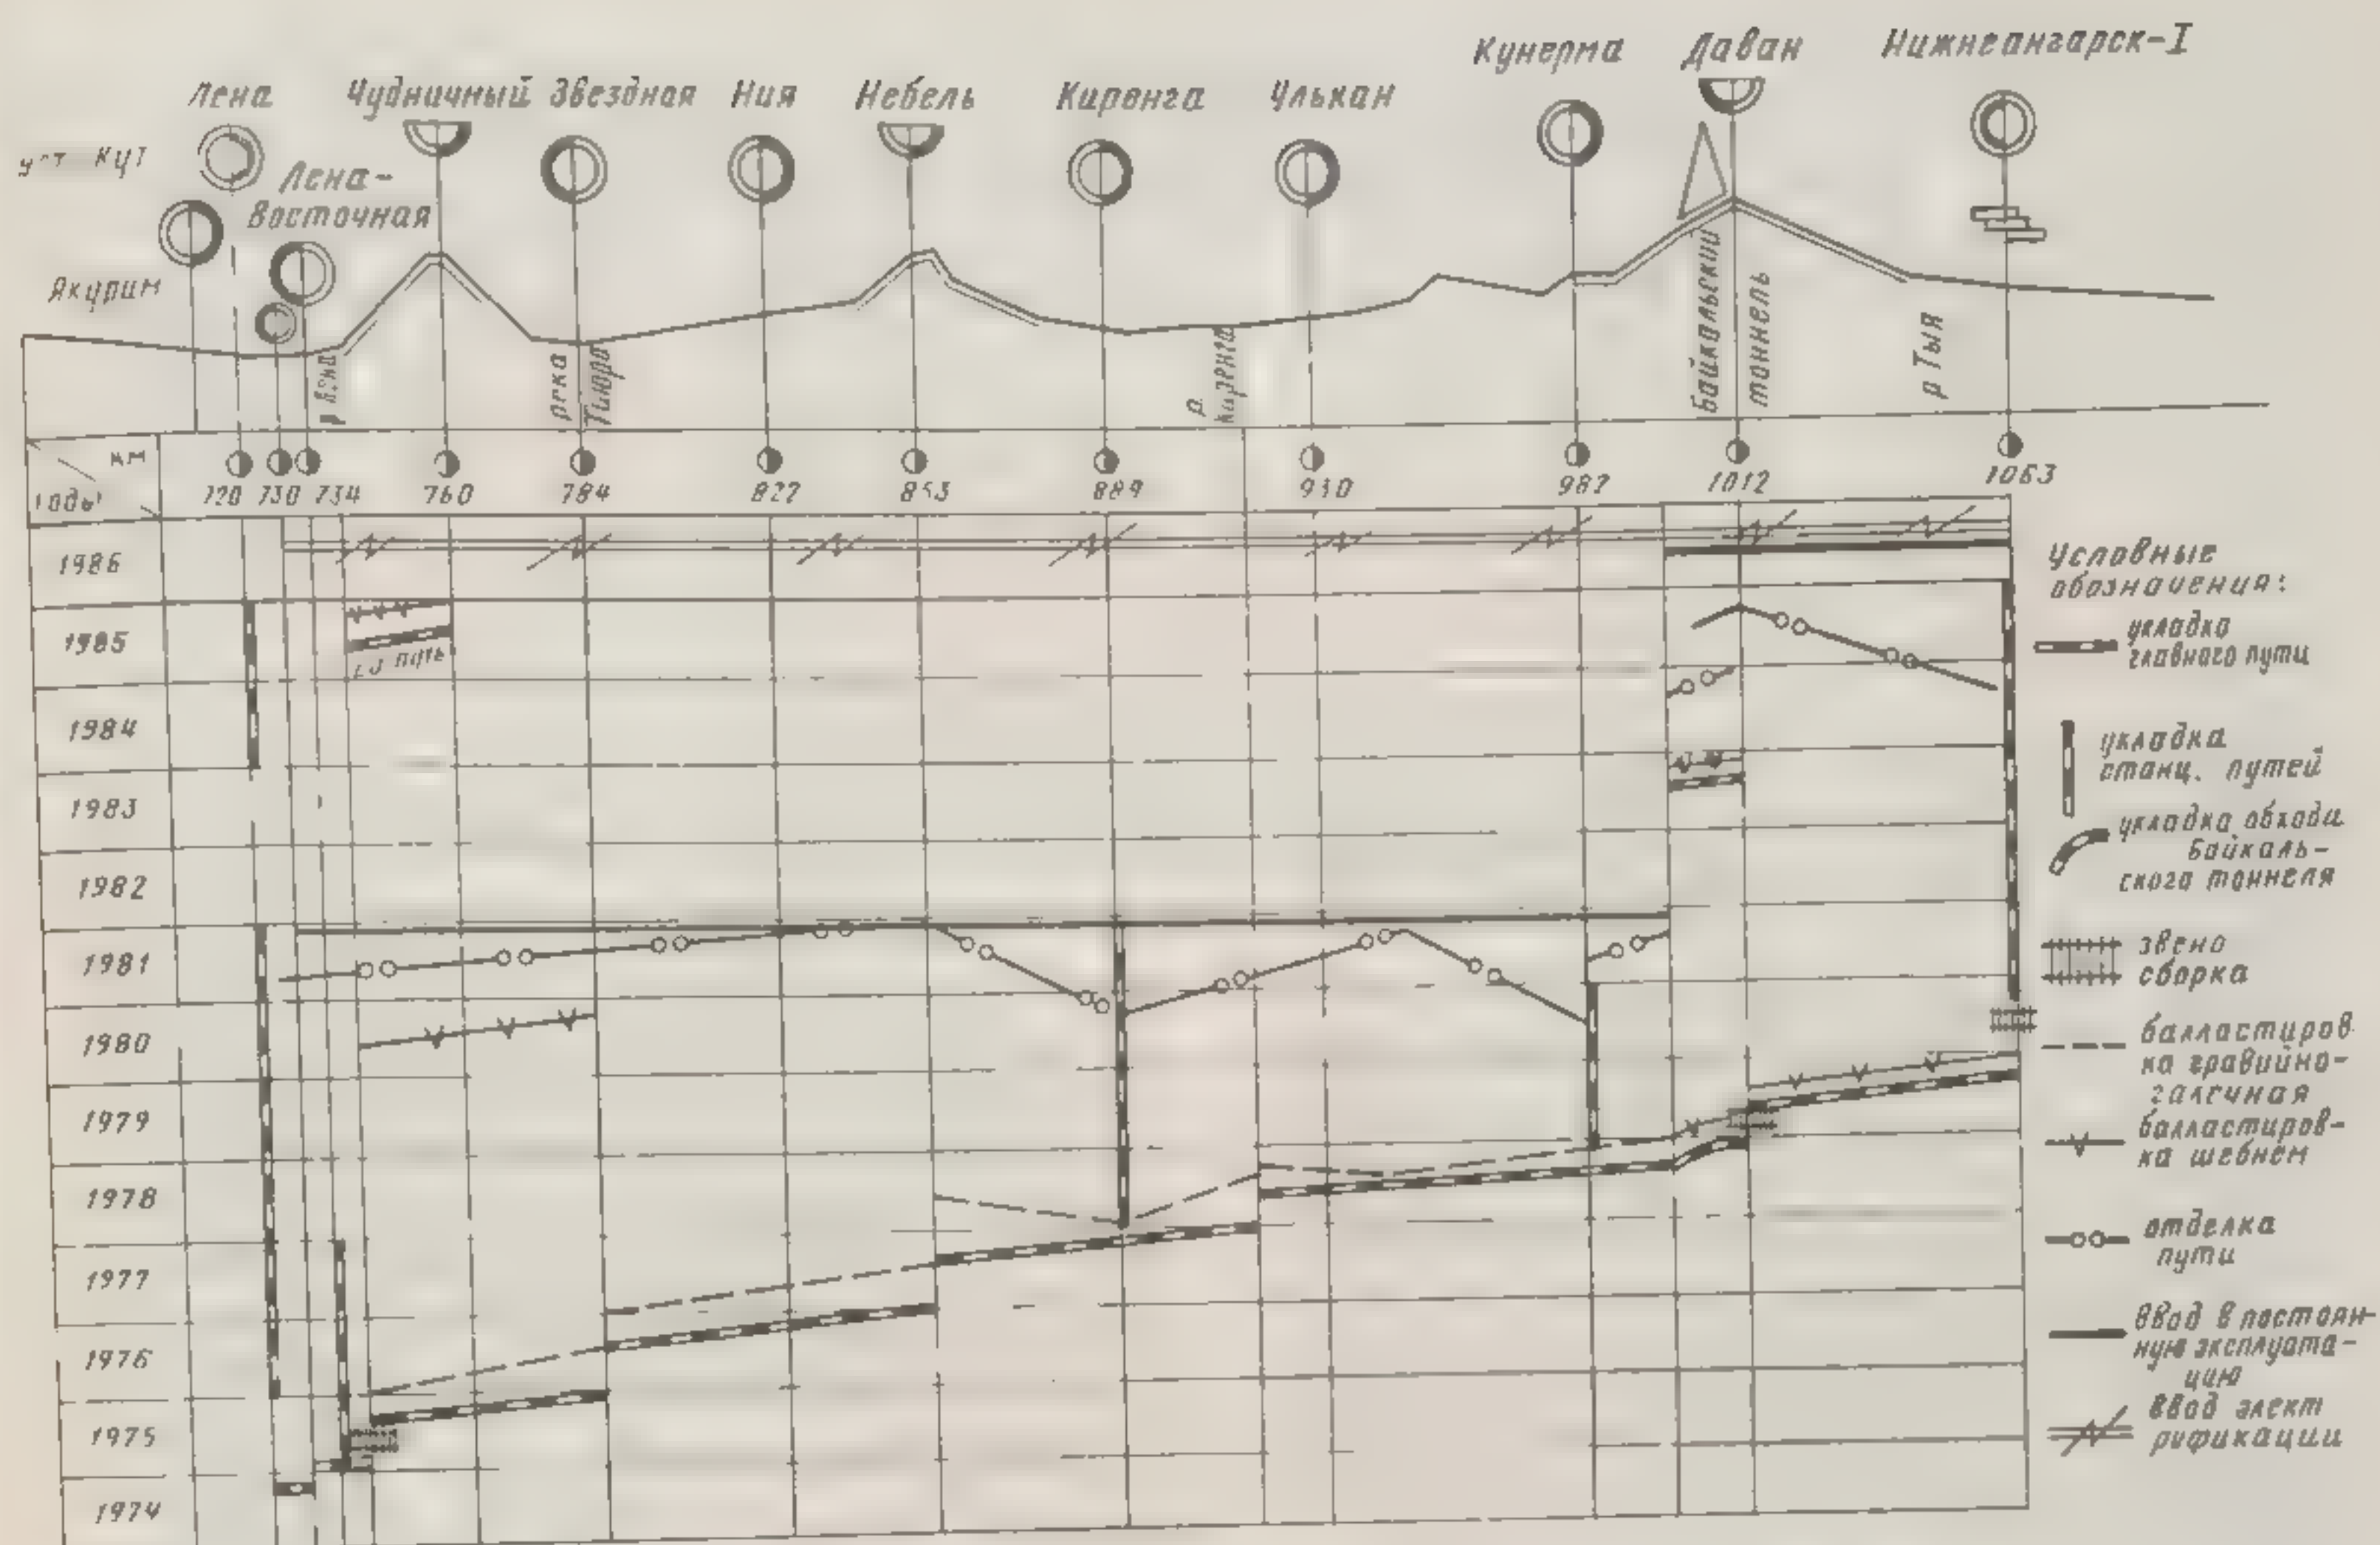 Кунерма Даван Нижнеангарск-I
Лена Чудничный Звездная Ния Небель Киренга Улькан
Кут
Лена-
Восточная
Якурим
р Лена
река
Тиюра
р.
Киренга
Байкальский
тоннель
р Тыя
км
годы
720 730 734 760 784 822 853 889 930 982 1012 1063
1986
1985
2й путь
1984
1983
1982
1981
1980
1979
1978
1977
1976
1975
1974
Условные
обозначения:
укладка
главного пути
укладка
станц. путей
укладка обхода
Байкаль-
ского тоннеля
звено
сборка
балластиров
ка гравийно-
галечная
балластиров-
ка щебнем
отделка
пути
Ввод в постоян-
ную эксплуата-
цию
Ввод элект
рификации